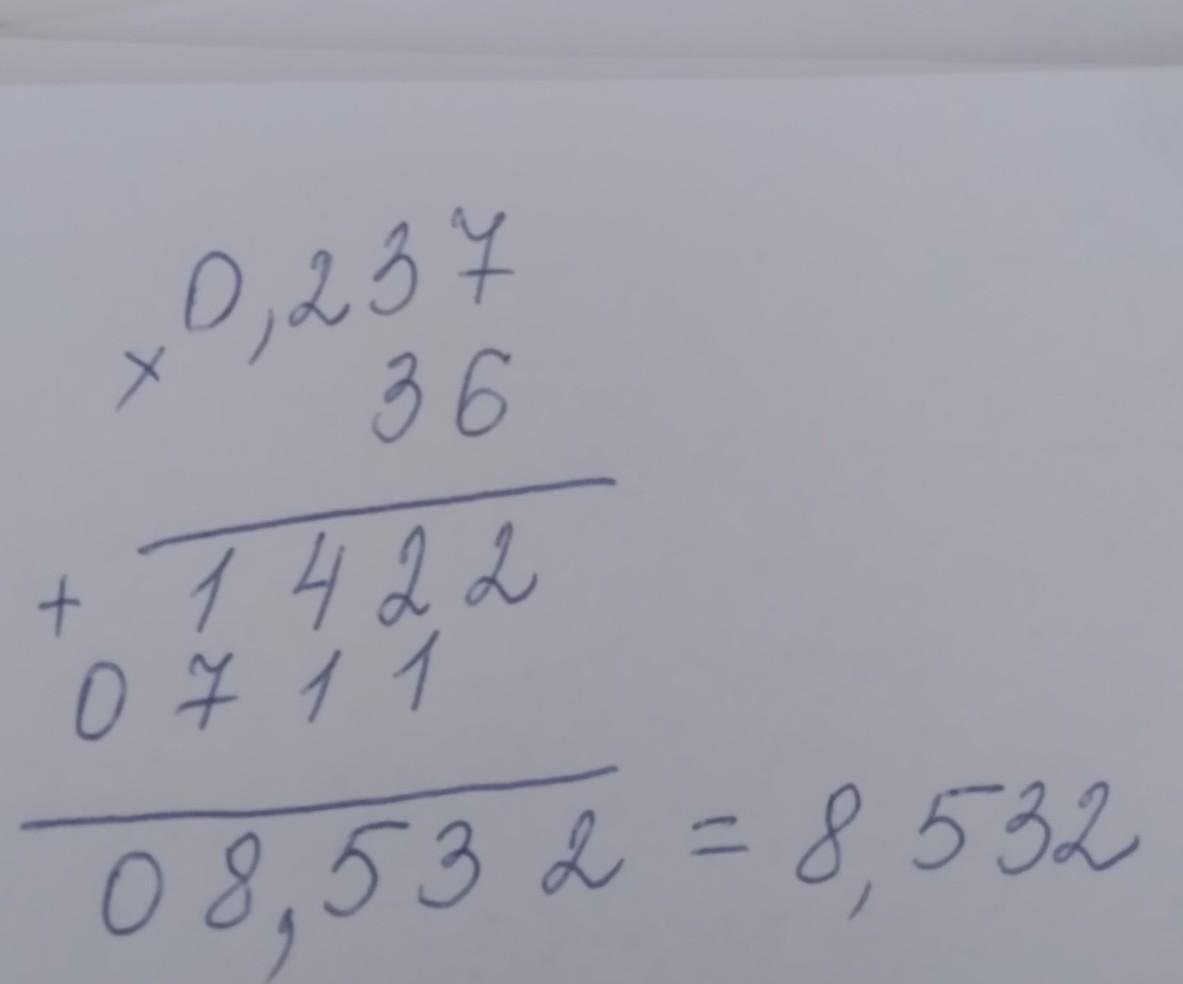 0,237
× 36
1422
+
0711
08,532 = 8,532